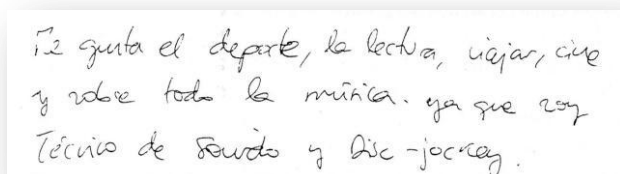 Me gusta el deporte, la lectura, viajar, cine
y sobre todo la música. ya que soy
Técnico de Sonido y Disc-jockey.